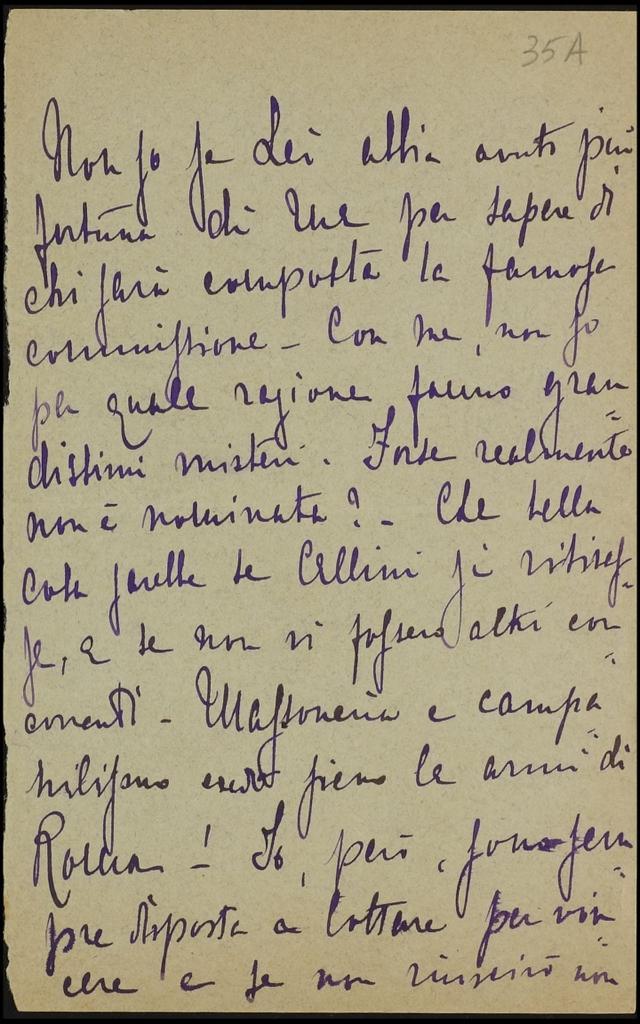 35A
Non so se Lei abbia avuto più
fortuna di me per sapere di
chi sarà composta la famosa
commissione - Con me, non so
per quale ragione fanno gran=
dissimi misteri. Forse realmente
non è nominata? - Che bella
cosa sarebbe se Cellini si ritiras=
se, e se non vi fossero altri con=
correnti - Massoneria e campa=
nilismo credo sieno le armi di
Roma! Io, però, sono sem=
pre disposta a lottare per vin=
cere e se non riuscirò non